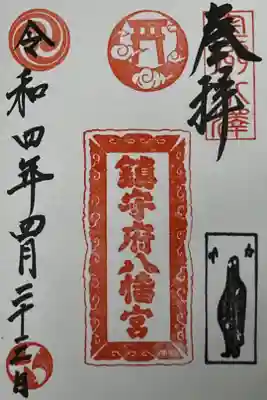 奉拝
鎮守府八幡宮
令和四年四月二十三日